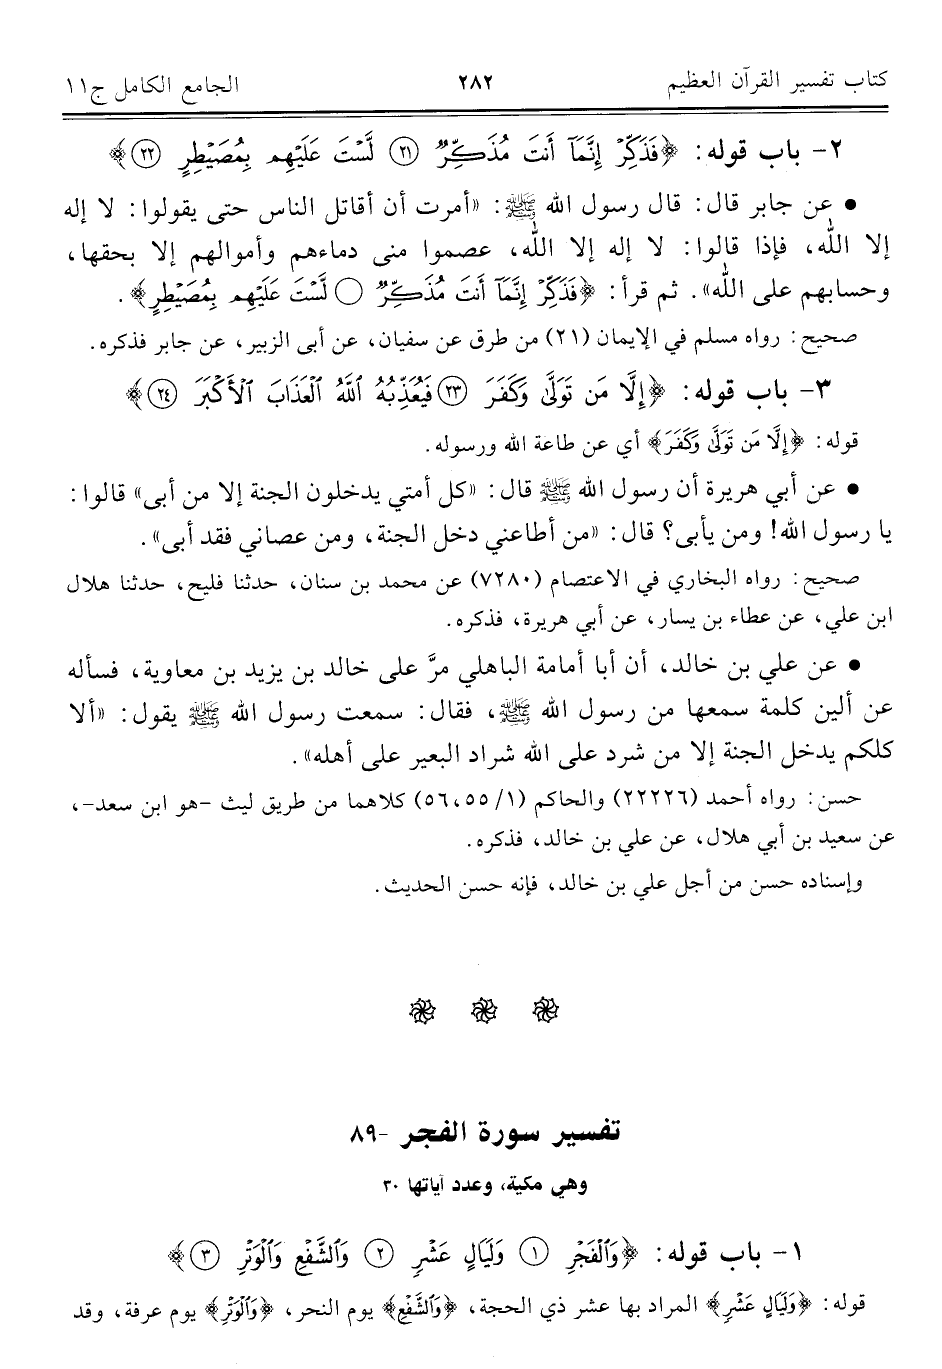 كتاب تفسير القرآن العظيم ٢٨٢ الجامع الكامل ج١١
٢- باب قوله: ﴿فَذَكِّرْ إِنَّمَآ أَنتَ مُذَكِّرٌ ٢١ لَّسْتَ عَلَيْهِم بِمُصَيْطِرٍ ٢٢﴾
• عن جابر قال: قال رسول الله ﷺ: «أمرت أن أقاتل الناس حتى يقولوا: لا إله
إلا الله، فإذا قالوا: لا إله إلا الله، عصموا منى دماءهم وأموالهم إلا بحقها،
وحسابهم على الله». ثم قرأ: ﴿فَذَكِّرْ إِنَّمَآ أَنتَ مُذَكِّرٌ ○ لَّسْتَ عَلَيْهِم بِمُصَيْطِرٍ﴾.
صحيح: رواه مسلم في الإيمان (٢١) من طرق عن سفيان، عن أبى الزبير، عن جابر فذكره.
٣- باب قوله: ﴿إِلَّا مَن تَوَلَّىٰ وَكَفَرَ ٢٣ فَيُعَذِّبُهُ ٱللَّهُ ٱلْعَذَابَ ٱلْأَكْبَرَ ٢٤﴾
قوله: ﴿إِلَّا مَن تَوَلَّىٰ وَكَفَرَ﴾ أي عن طاعة الله ورسوله.
• عن أبي هريرة أن رسول الله ﷺ قال: «كل أمتي يدخلون الجنة إلا من أبى» قالوا:
يا رسول الله! ومن يأبى؟ قال: «من أطاعني دخل الجنة، ومن عصاني فقد أبى».
صحيح: رواه البخاري في الاعتصام (٧٢٨٠) عن محمد بن سنان، حدثنا فليح، حدثنا هلال
ابن علي، عن عطاء بن يسار، عن أبي هريرة، فذكره.
• عن علي بن خالد، أن أبا أمامة الباهلي مرَّ على خالد بن يزيد بن معاوية، فسأله
عن ألين كلمة سمعها من رسول الله ﷺ، فقال: سمعت رسول الله ﷺ يقول: «ألا
كلكم يدخل الجنة إلا من شرد على الله شراد البعير على أهله».
حسن: رواه أحمد (٢٢٢٢٦) والحاكم (١/ ٥٥، ٥٦) كلاهما من طريق ليث -هو ابن سعد-،
عن سعيد بن أبي هلال، عن علي بن خالد، فذكره.
وإسناده حسن من أجل علي بن خالد، فإنه حسن الحديث.
تفسير سورة الفجر -٨٩
وهي مكية، وعدد آياتها ٣٠
١- باب قوله: ﴿وَٱلْفَجْرِ ١ وَلَيَالٍ عَشْرٍ ٢ وَٱلشَّفْعِ وَٱلْوَتْرِ ٣﴾
قوله: ﴿وَلَيَالٍ عَشْرٍ﴾ المراد بها عشر ذي الحجة، ﴿وَٱلشَّفْعِ﴾ يوم النحر، ﴿وَٱلْوَتْرِ﴾ يوم عرفة، وقد